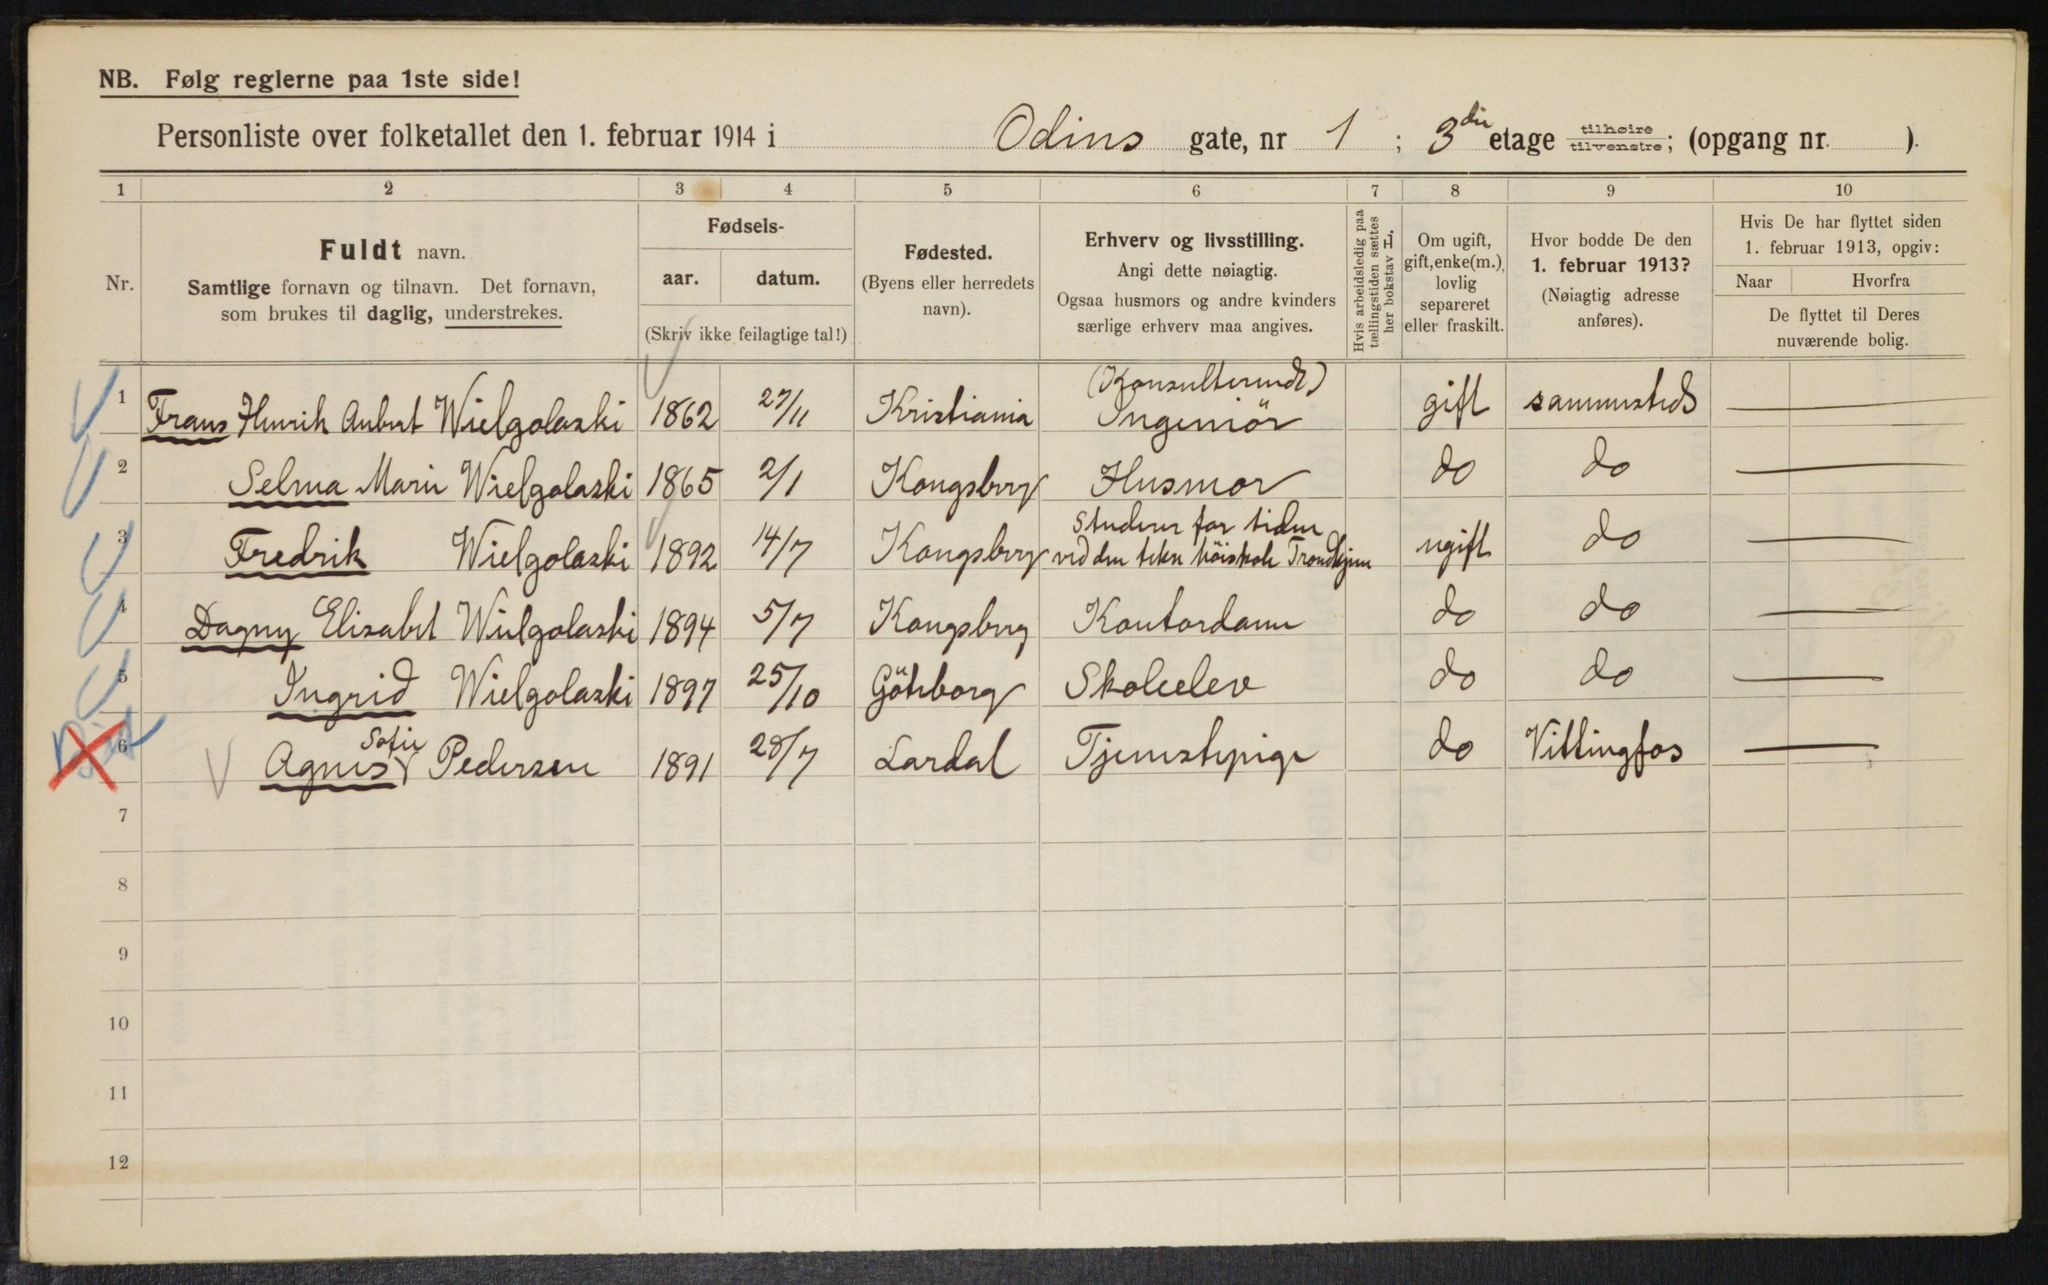 NB. Følg reglerne paa 1ste side!
Personliste over folketallet den 1. februar 1914 i Odins gate, nr 1 ; 3die etage tilhøire tilvenstre; (opgang nr. ).
1 2 3 4 5 6 7 8 9 10
Nr.
Fuldt navn.
Samtlige fornavn og tilnavn. Det fornavn,
som brukes til daglig, understrekes.
Fødsels-
aar. datum.
(Skriv ikke feilagtige tal!)
Fødested.
(Byens eller herredets
navn).
Erhverv og livsstilling.
Angi dette nøiagtig.
Ogsaa husmors og andre kvinders
særlige erhverv maa angives.
Hvis arbeidsledig paa
tællingstiden sættes
her bokstav L.
Om ugift,
gift, enke(m.),
lovlig
separeret
eller fraskilt.
Hvor bodde De den
1. februar 1913?
(Nøiagtig adresse
anføres).
Hvis De har flyttet siden
1. februar 1913, opgiv:
Naar Hvorfra
De flyttet til Deres
nuværende bolig.
(Konsulterende)
1 Frans Henrik Aubert Wielgolaski 1862 27/11 Kristiania Ingeniör gift sammesteds —
2 Selma Marie Wielgolaski 1865 2/1 Kongsberg Husmor do do —
Studerer for tiden
3 Fredrik Wielgolaski 1892 14/7 Kongsberg ved den tekn höiskole Trondhjem ugift do —
4 Dagny Elisabet Wielgolaski 1894 5/7 Kongsberg Kontordame do do —
5 Ingrid Wielgolaski 1897 25/10 Göteborg Skoleelev do do —
Sofie
6 Agnes Pedersen 1891 28/7 Lardal Tjenestepige do Vittingfos —
7
8
9
10
11
12